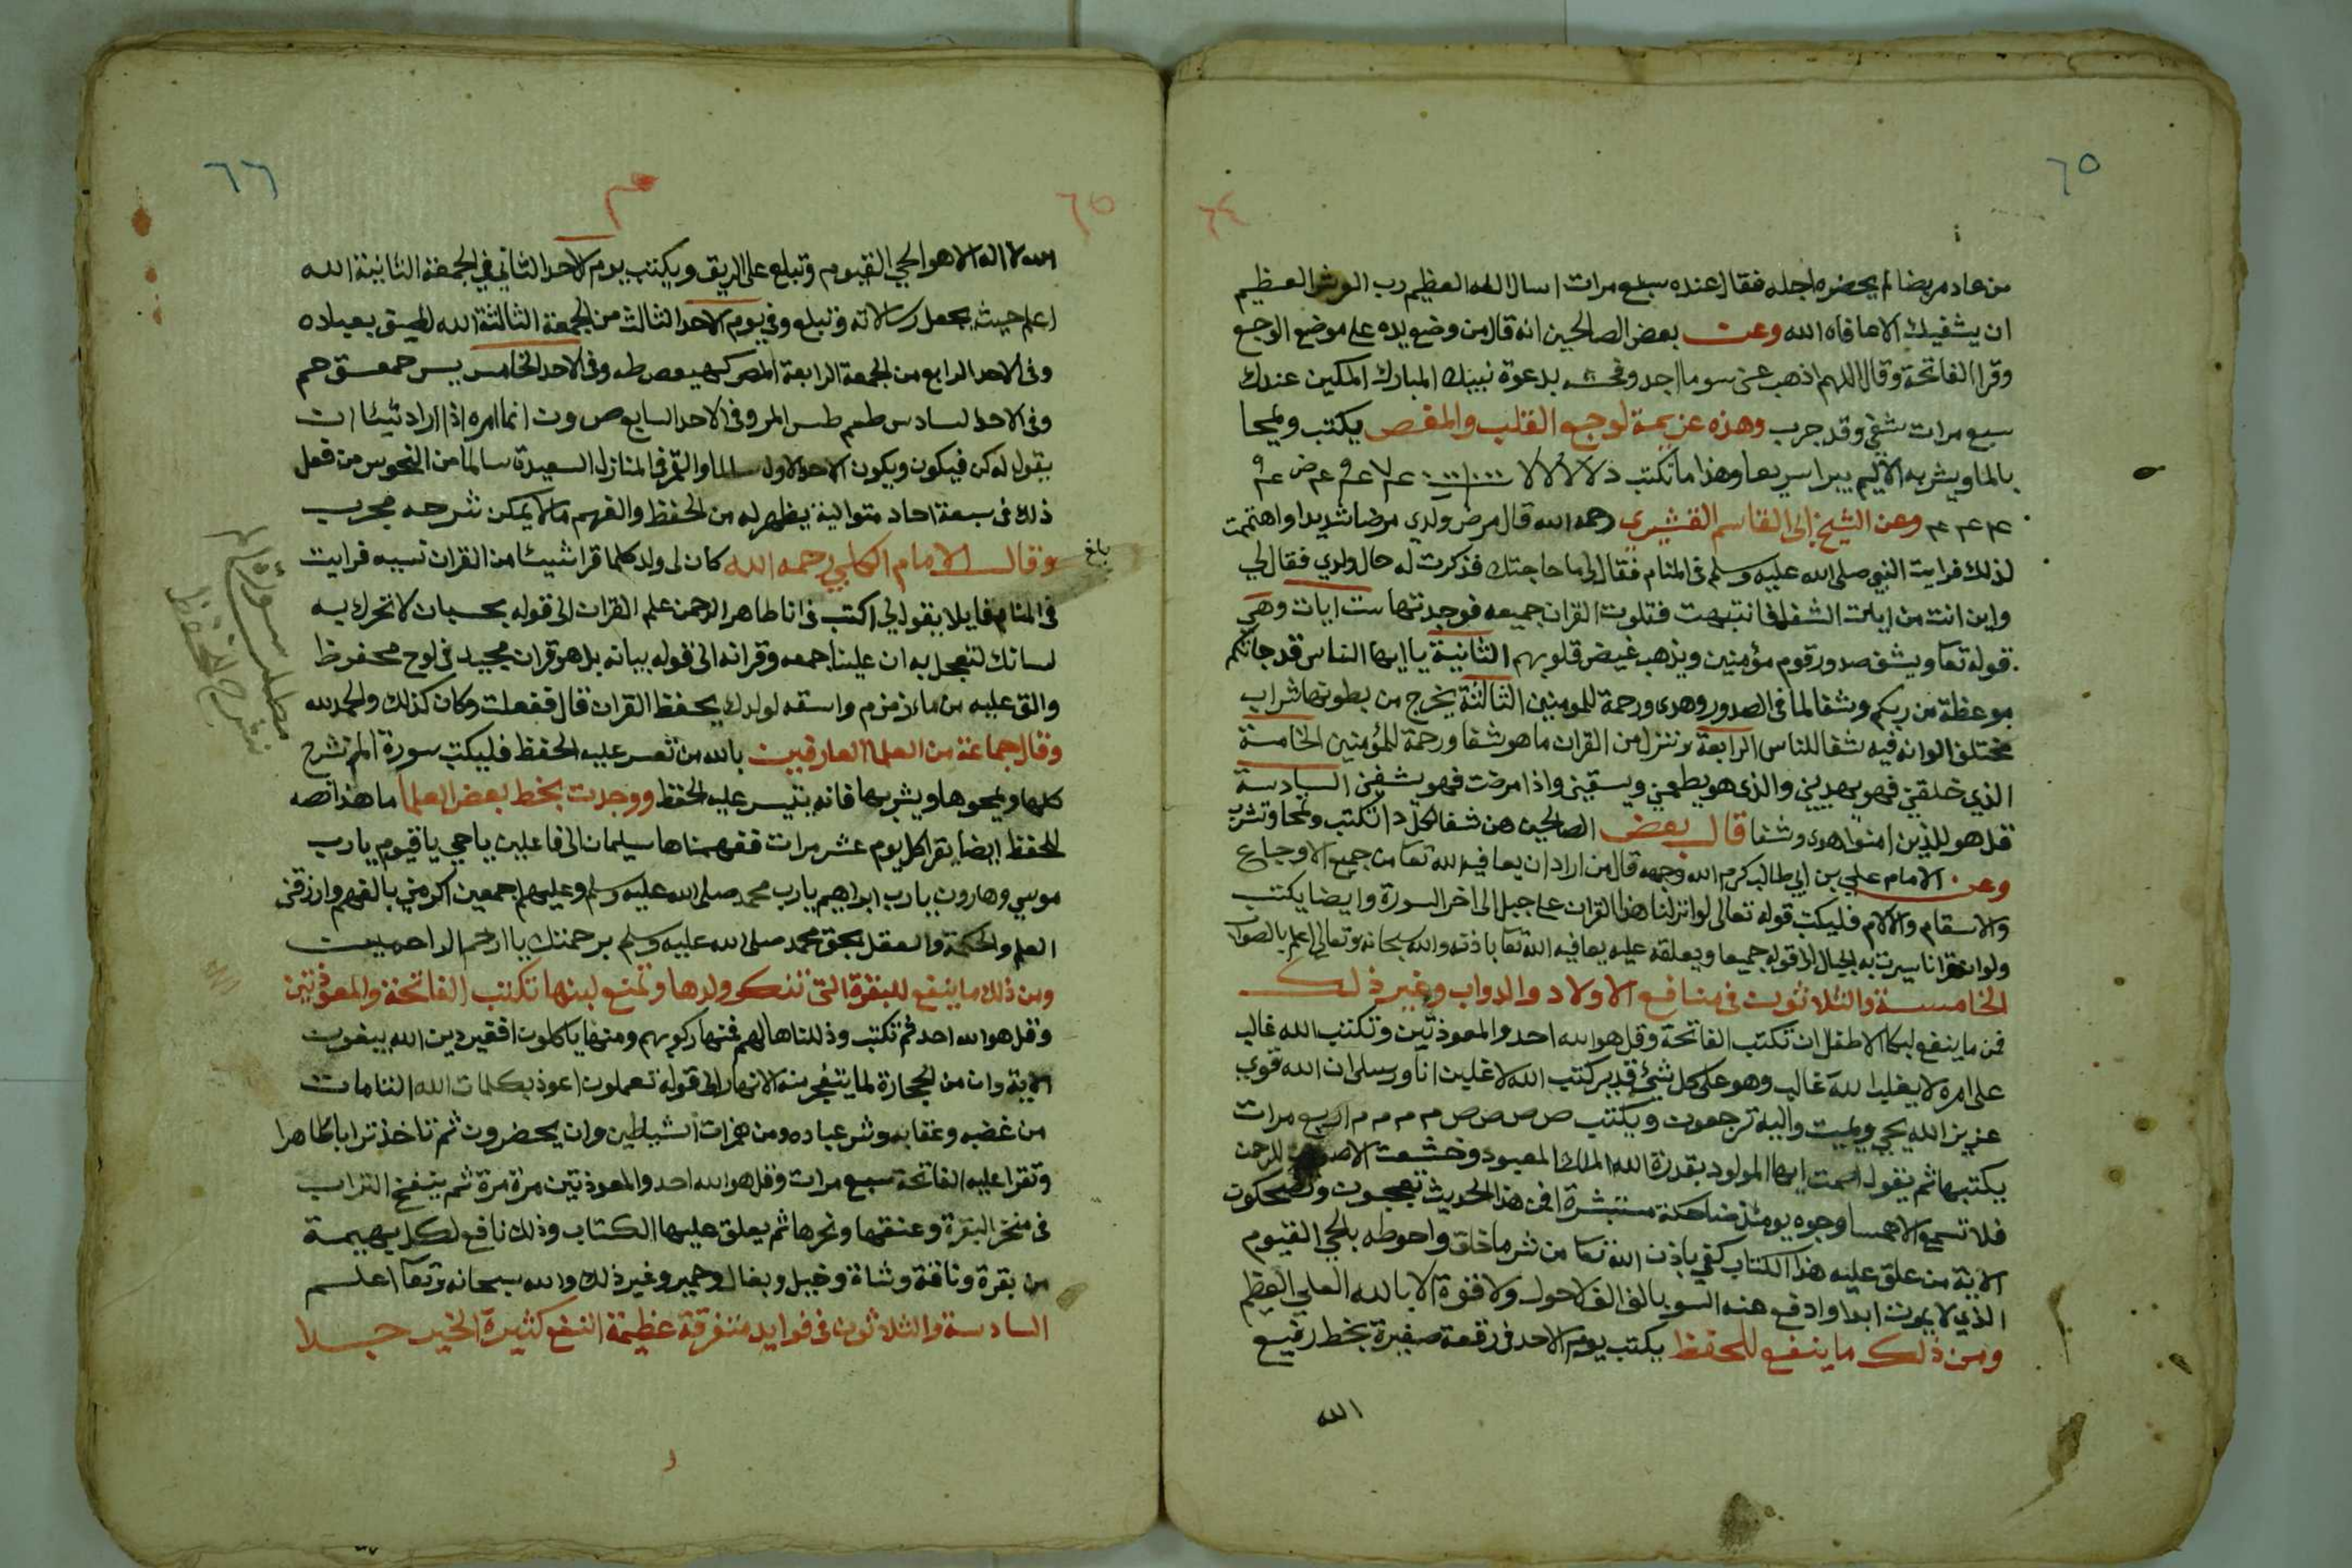 ٦٥
٦٤
من عاد مريضا لم يحضره اجله فقال عنده سبع مرات اسال الله العظيم رب العرش العظيم
ان يشفيك الا عافاه الله وعن بعض الصالحين انه قال من وضع يده على موضع الوجع
وقرا الفاتحة وقال اللهم اذهب عني سوما اجد وفحشه بدعوة نبيك المبارك المكين عندك
سبع مرات شفي وقد جرب وهذه عزيمة لوجع القلب والمغص يكتب ويمحا
بالما ويشربه الاليم يبرا سريعا وهذا ما تكتب
وعن الشيخ ابي القاسم القشيري رحمه الله قال مرض ولدي مرضا شديدا واهتممت
لذلك فرايت النبي صلى الله عليه وسلم في المنام فقال لي ما حاجتك فذكرت له حال ولدي فقال لي
واين انت من ايات الشفا فانتبهت فتلوت القران جميعه فوجدتها ست ايات وهي
قوله تعا ويشف صدور قوم مؤمنين ويذهب غيض قلوبهم الثانية يا ايها الناس قد جاتكم
موعظة من ربكم وشفا لما في الصدور وهدى ورحمة للمومنين الثالثة يخرج من بطونها شراب
مختلف الوانه فيه شفا للناس الرابعة وننزل من القران ما هو شفا ورحمة للمؤمنين الخامسة
الذي خلقني فهو يهديني والذي هو يطعمني ويسقيني واذا مرضت فهو يشفين السادسة
قل هو للذين امنوا هدى وشفا قال بعض الصالحين هن شفا لكل دا تكتب وتمحا وتشرب
وعن الامام علي بن ابي طالب كرم الله وجهه قال من اراد ان يعافيه الله تعا من جميع الاوجاع
والاسقام والالام فليكتب قوله تعالى لو انزلنا هذا القران على جبل الى اخر السورة وايضا يكتب
ولو ان قرانا سيرت به الجبال الى قوله جميعا ويعلقه عليه يعافيه الله تعا باذنه والله سبحانه وتعالى اعلم بالصواب
الخامسة والثلاثون في منافع الاولاد والدواب وغير ذلك
فمن ما ينفع لبكا الاطفال ان تكتب الفاتحة وقل هو الله احد والمعوذتين وتكتب الله غالب
على امره لا يغلب الله غالب وهو على كل شئ قدير كتب الله لاغلبن انا ورسلي ان الله قوي
عزيز الله يحي ويميت واليه ترجعون ويكتب ص ص ص ص م م م م اربع مرات
يكتبها ثم يقول اصمت ايها المولود بقدرة الله الملك المعبود وخشعت الاصوات للرحمن
فلا تسمع الا همسا وجوه يومئذ ضاحكة مستبشرة افمن هذا الحديث تعجبون وتضحكون
الاية من علق عليه هذا الكتاب كفي باذن الله تعا من شر ما خلق واحوطه بالحي القيوم
الذي لا يموت ابدا وادفع عنه السو بالف الف لا حول ولا قوة الا بالله العلي العظيم
ومن ذلك ما ينفع للحفظ يكتب يوم الاحد في رقعة صغيرة بخط رفيع
الله
٦٦
٦٥
الله لا اله الا هو الحي القيوم وتبلع على الريق ويكتب يوم الاحد الثاني في الجمعة الثانية الله
اعلم حيث يجعل رسالاته وتبلع وفي يوم الاحد الثالث من الجمعة الثالثة الله لطيف بعباده
وفي الاحد الرابع من الجمعة الرابعة المص كهيعص طه وفي الاحد الخامس يس حمعسق حم
وفي الاحد السادس طسم طس المر وفي الاحد السابع ص ون انما امره اذا اراد شيئا ان
يقول له كن فيكون ويكون الاحد الاول سالما والقمر في المنازل السعيدة سالما من النحوس من فعل
ذلك في سبعة احاد متوالية يظهر له من الحفظ والفهم ما لا يمكن شرحه مجرب
وقال الامام الكلبي رحمه الله كان لي ولد كلما قرا شيئا من القران نسيه فرايت
في المنام قايلا يقول لي اكتب في انا طاهر الرحمن علم القران الى قوله بحسبان لا تحرك به
لسانك لتعجل به ان علينا جمعه وقرانه الى قوله بيانه بل هو قران مجيد في لوح محفوظ
والق عليه من ماء زمزم واسقه لولدك يحفظ القران قال ففعلت وكان كذلك والحمد لله
وقال جماعة من العلما العارفين بالله من تعسر عليه الحفظ فليكتب سورة الم نشرح
كلها ويمحوها ويشربها فانه يتيسر عليه الحفظ ووجدت بخط بعض العلما ما هذا نصه
للحفظ ايضا يقرا كل يوم عشر مرات ففهمناها سليمان الى فاعلين يا حي يا قيوم يا رب
موسي وهارون يا رب ابراهيم يا رب محمد صلى الله عليه وسلم وعليهم اجمعين اكرمني بالفهم وارزقني
العلم والحكمة والعقل بحق محمد صلى الله عليه وسلم برحمتك يا ارحم الراحمين
ومن ذلك ما ينفع للبقرة التي تنكر ولدها وتمنع لبنها تكتب الفاتحة والمعوذتين
وقل هو الله احد ثم تكتب وذللناها لهم فمنها ركوبهم ومنها ياكلون افغير دين الله يبغون
الاية وان من الحجارة لما يتفجر منه الانهار الى قوله تعملون اعوذ بكلمات الله التامات
من غضبه وعقابه وشر عباده ومن همزات الشياطين وان يحضرون ثم تاخذ ترابا طاهرا
وتقرا عليه الفاتحة سبع مرات وقل هو الله احد والمعوذتين مرة مرة ثم ينفخ التراب
في منخر البقرة وعنقها ونحرها ثم يعلق عليها الكتاب وذلك نافع لكل بهيمة
من بقرة وناقة وشاة وخيل وبغال وحمير وغير ذلك والله سبحانه وتعا اعلم
السادسة والثلاثون في فوايد متفرقة عظيمة النفع كثيرة الخير جدا
بلغ
مطلب سورة الم
نشرح للحفظ